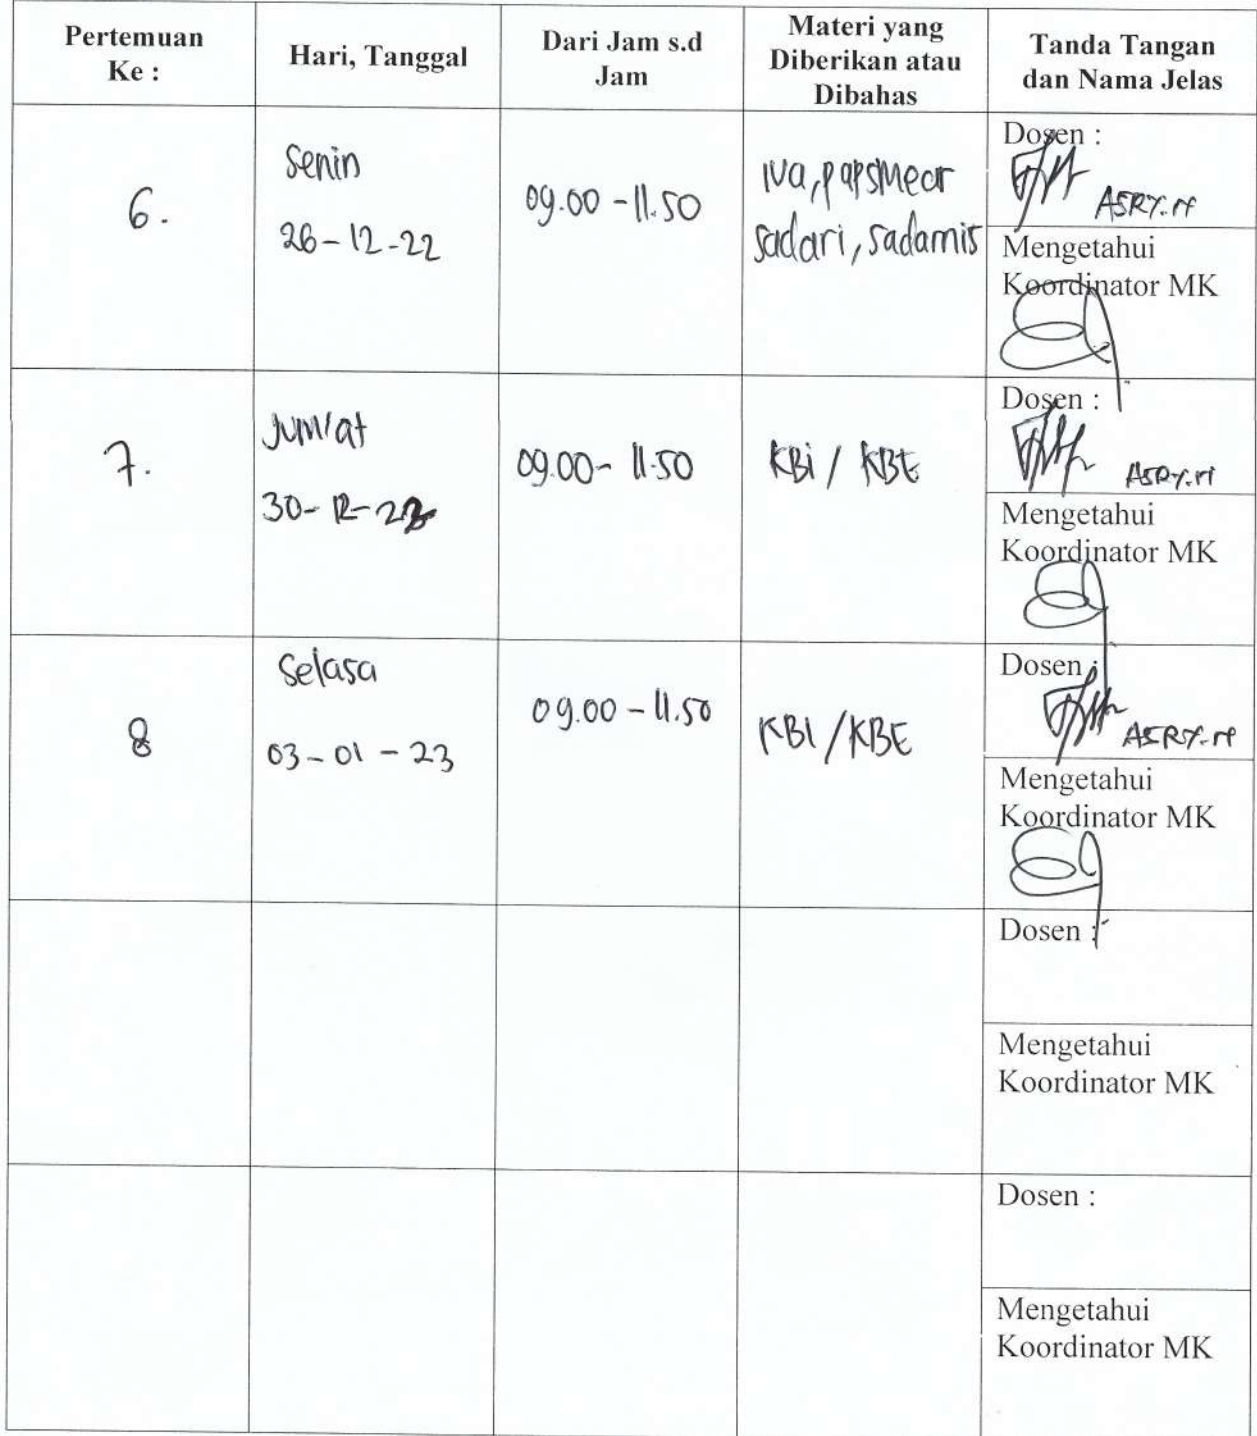 Pertemuan
Ke :
Hari, Tanggal
Dari Jam s.d
Jam
Materi yang
Diberikan atau
Dibahas
Tanda Tangan
dan Nama Jelas
6.
Senin
26-12-22
09.00 - 11.50
iva, papsmear
sadari, sadamis
Dosen :
Mengetahui
Koordinator MK
7.
Jum'at
30-12-22
09.00 - 11.50
KBI / KBE
Dosen :
Mengetahui
Koordinator MK
8
Selasa
03-01-23
09.00 - 11.50
KBI / KBE
Dosen :
Mengetahui
Koordinator MK
Dosen :
Mengetahui
Koordinator MK
Dosen :
Mengetahui
Koordinator MK